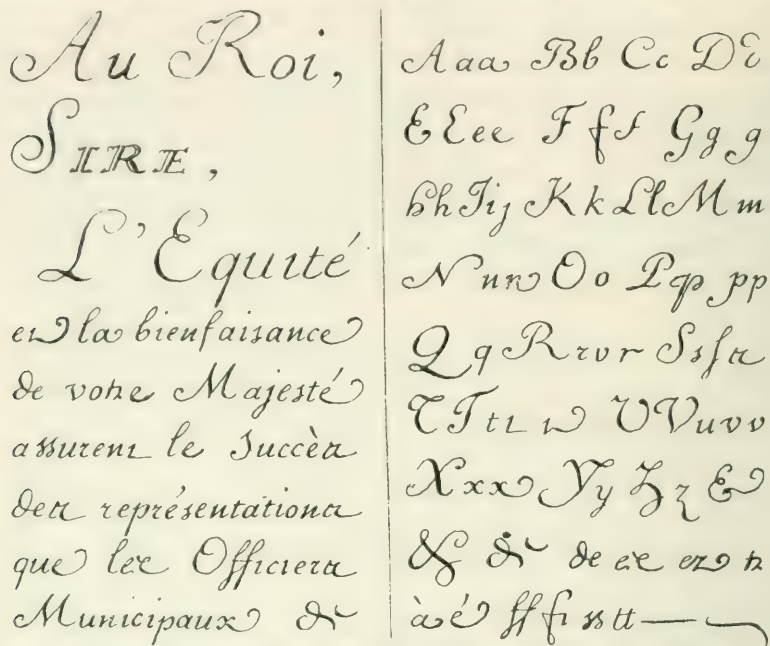 Au Roi,
SIRE,
L'Equité
et la bienfaisance
de votre Majesté
assurent le succès
des représentations
que les Officiers
Municipaux &
Aaa Bb Cc Dd
EEee Fff Ggg
hh Iij Kk Ll Mm
N nn Oo Pp pp
Qq Rrvr Ssss
TTtt t UVuvv
Xxx Yy Zz &
& & de ee et tr
à é ff fi ss tt